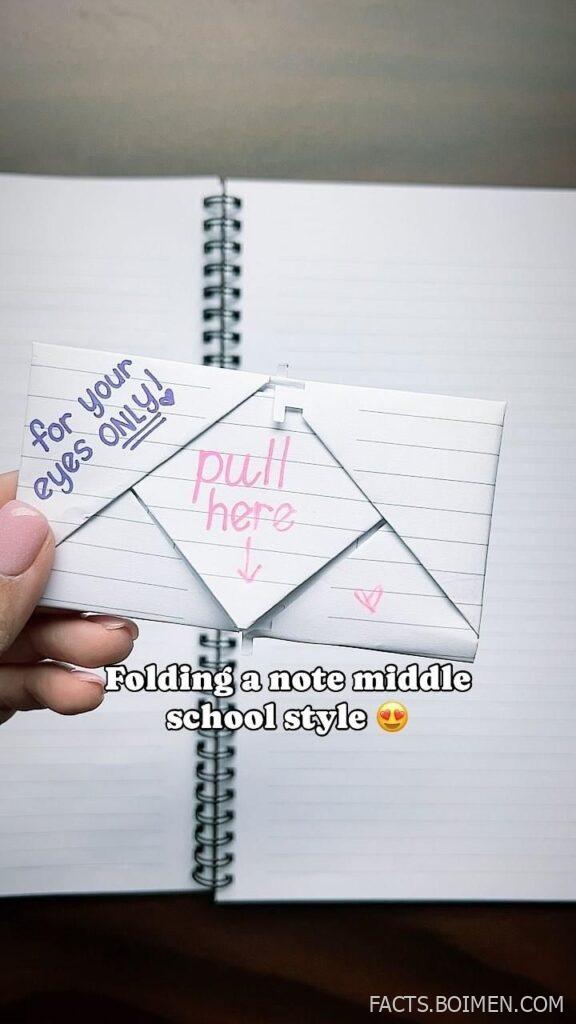 for your
eyes ONLY!
pull
here
Folding a note middle
school style 😍
FACTS.BOIMEN.COM